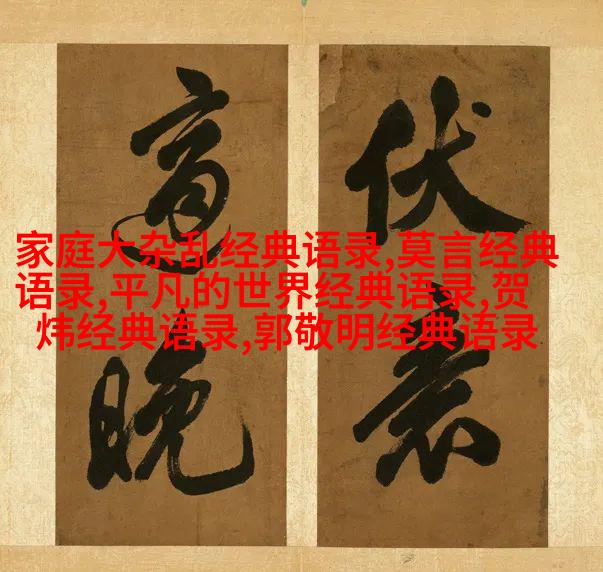 家庭大杂乱经典语录,莫言经典
语录,平凡的世界经典语录,贺
炜经典语录,郭敬明经典语录
伏
晚